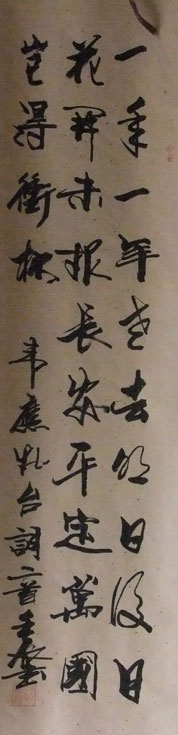 一年一年老去明日後日
花開未報長安平定萬國
豈得銜杯
韋應物台詞二首王